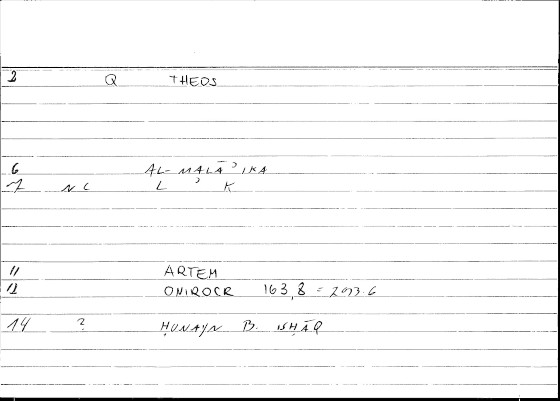 2 Q THEOS
6 AL-MALĀʾIKA
7 NC L ʾ K
11 ARTEM
12 ONIROCR 163,8 = 2093.6
14 ? ḤUNAYN B. ISḤĀQ